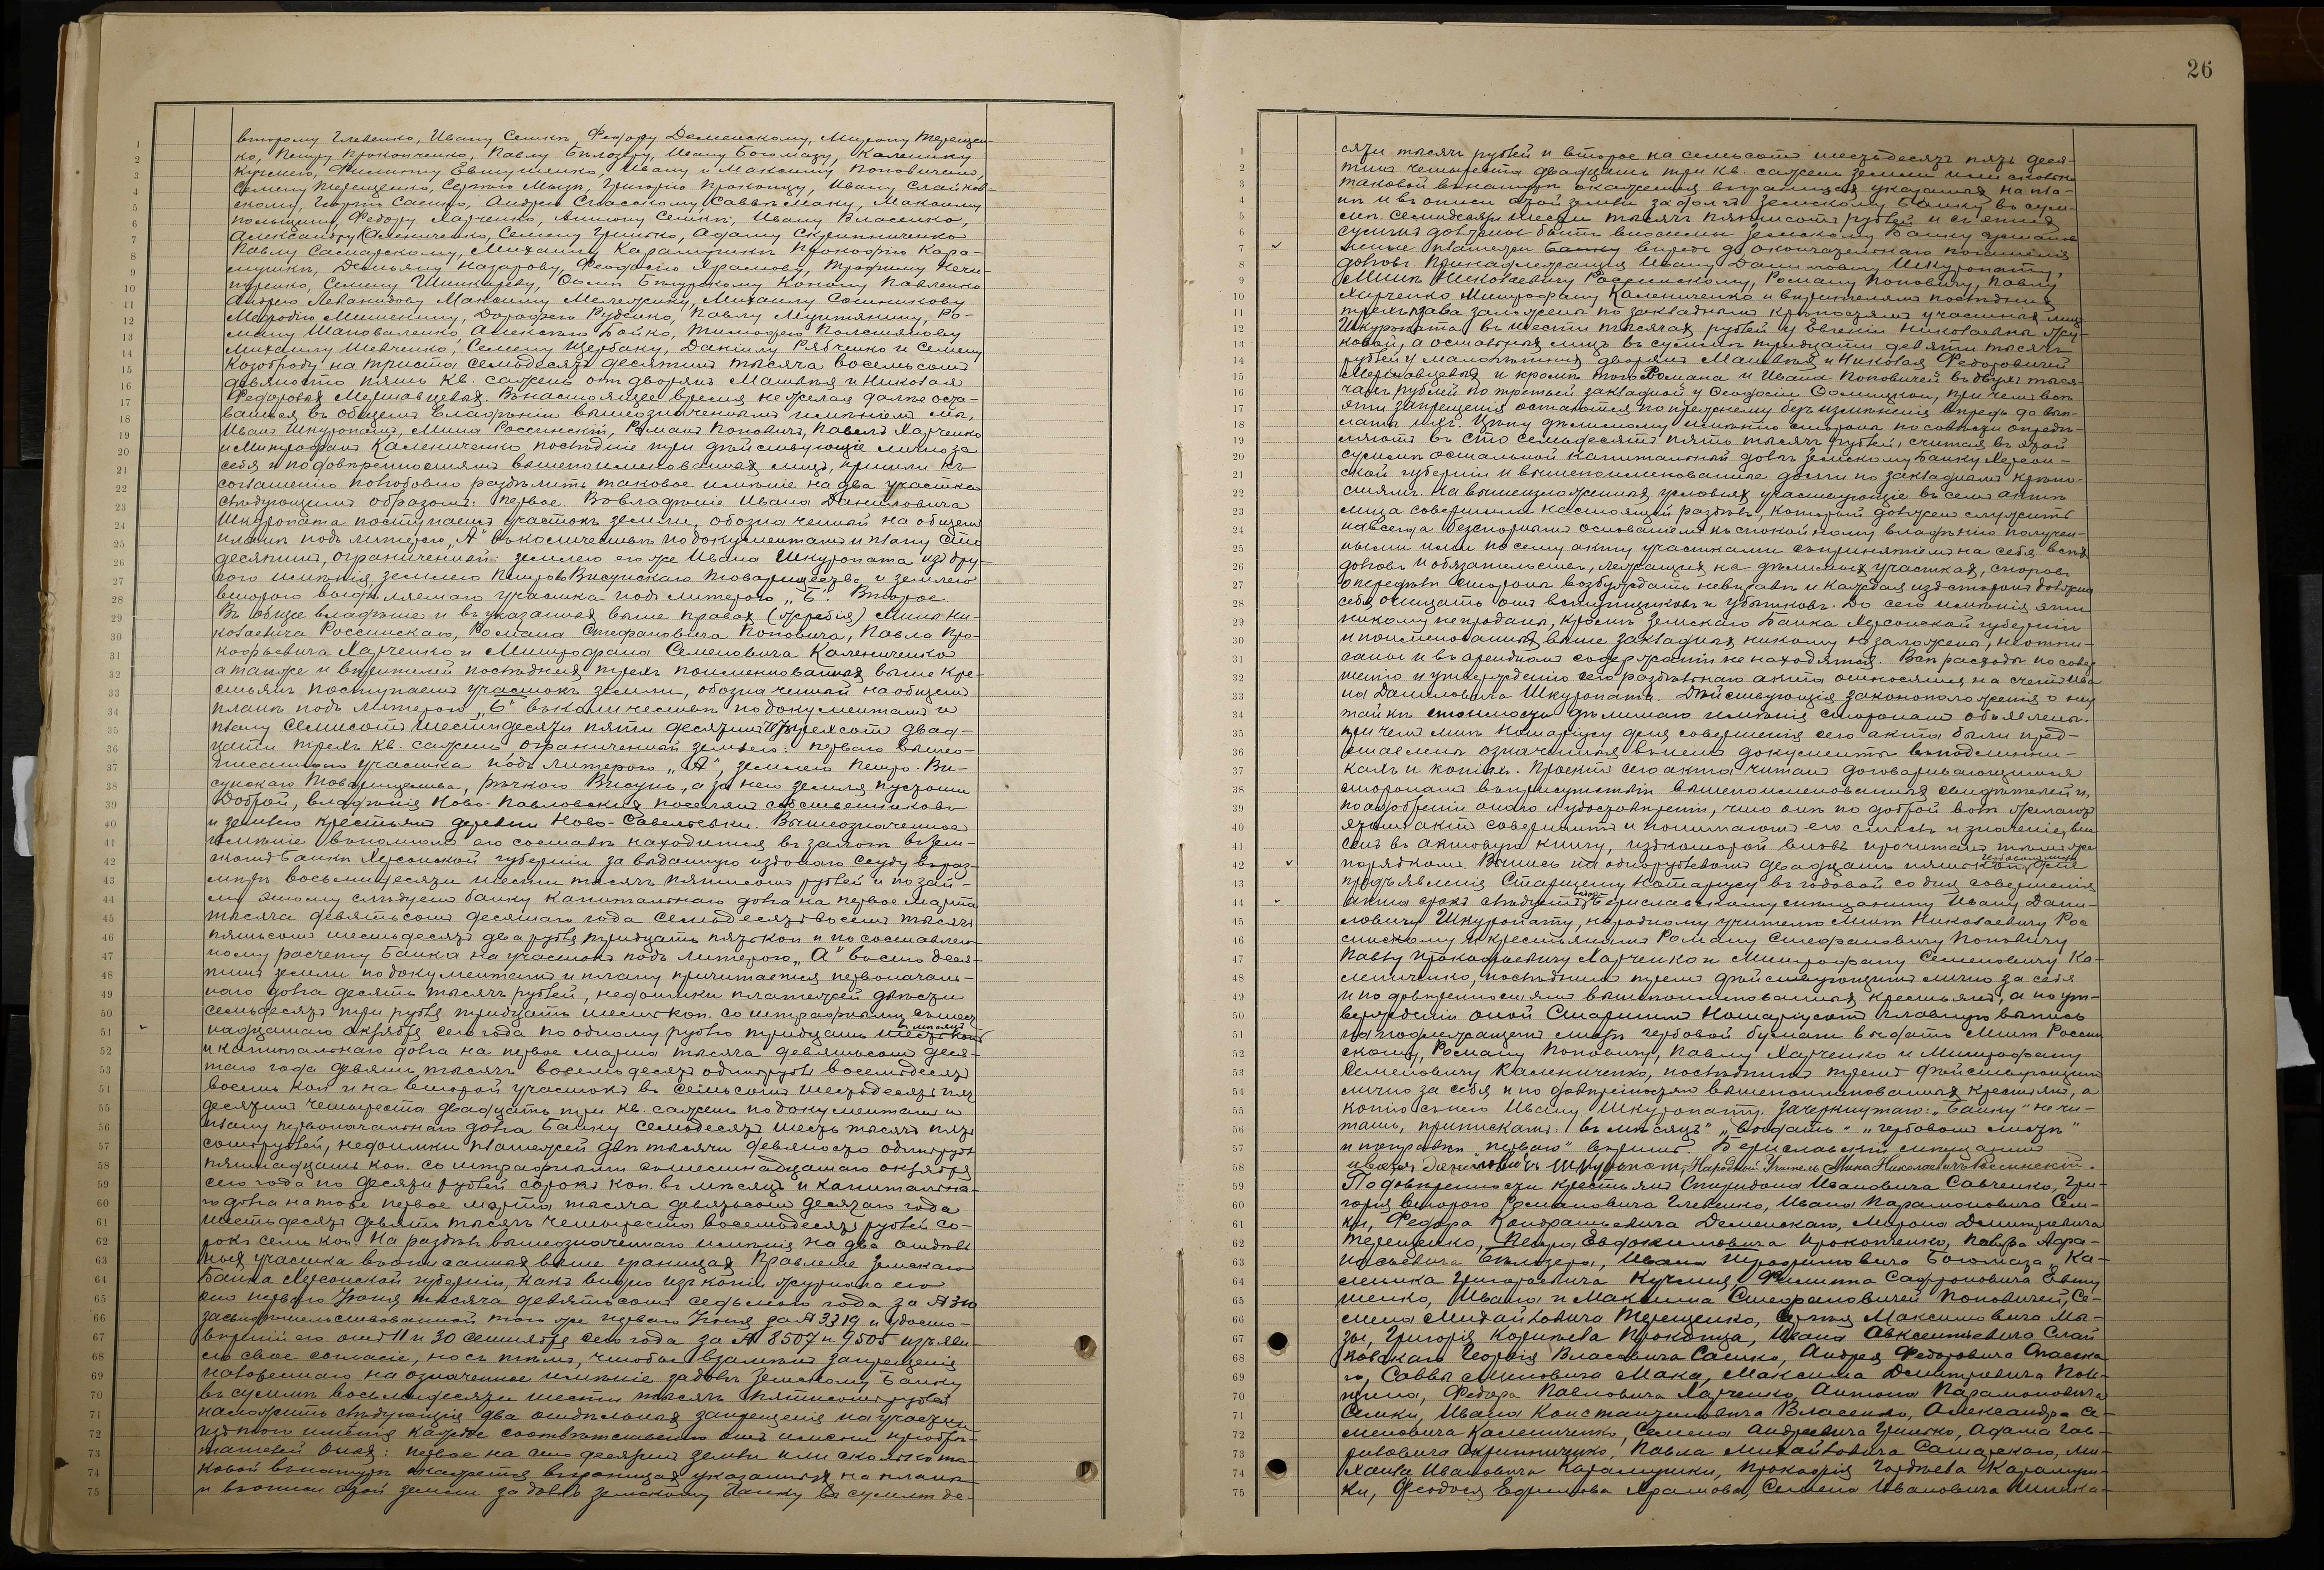 второму Глевенко, Ивану Семки, Федору Деменскому, Мирону Терещен-
ко, Петру Прокопченко, Павлу Белозеру, Ивану Богомазу, Каленику
Кучмию, Филиппу Евтушенко, Ивану и Максиму Поповичам,
Семену Терещенко, Сергею Мызе, Григорию Проконцу, Ивану Слайков-
скому, Георгию Сасико, Андрею Спасскому, Савве Маку, Максиму
Польщину, Федору Харченко, Антону Семки, Ивану Власенко,
Александру Калениченко, Семену Гринько, Адаму Скрипниченко
Павлу Самарскому, Михаилу Карамушки Прокофию Кара-
мушки, Демьяну Назарову, Феодосию Храмову, Трофиму Кечи-
Семену Шинкареву, Конону Павленко
Андрею Леванидову Максиму Мележику, Михаилу Сотникову
Мефодию Мишенину, Дорофею Руденко, Павлу Мунтяжину, Ро-
ману Шаповаленко, Алексею Бойко, Тимофею Полетякову
Михаилу Шевченко, Семену Щербаку, Даниилу Рябченко и Семену
Козоброду на триста семьдесят десятин тысяча восемьсот
девяносто пять кв. сажень от дворян Матвея и Николая
Федоровых Мержавцевых. В настоящее время не желая далее оста-
ваться в общем владении вышеозначенным имением мы,
Иван Шкуропат, Мина Россинский, Роман Попович, Павел Харченко
и Митрофан Калениченко последние три действующие лично за
себя и по доверенностям вышепоименованных лиц, пришли к
соглашению полюбовно разделить таковое имение на два участка
следующим образом: Первое. Во владение Ивана Даниловича
Шкуропата поступает участок земли, обозначенный на общем
плане под литерою „А" в количестве по документам и плану сто
десятин, ограниченный: землею его же Ивана Шкуропата из дру-
гого имения, землею Петрово Висунского товарищества и землею
второго выделяемого участка под литерою „Б". Второе.
В общее владение и в указанных выше правах (жребия) Мины Ни-
колаевича Россинскаго, Романа Стефановича Поповича, Павла Про-
кофьевича Харченко и Митрофана Семеновича Калениченко
а также и верителей последних трех поименованных выше кре-
стьян поступает участок земли, обозначенный на общем
плане под литерою „Б" в количестве по документам и
плану семисот шестидесяти пяти десятин четырехсот двад-
цати трех кв. сажень, ограниченный землею: перваго выше-
писаннаго участка под литерою „А", землею Петро-Ви-
сунскаго Товарищества, речкою Висунь, а за нею земля пустоши
Доброй, владения Ново-Павловских поселян собственников
и землею крестьян деревни Ново-Савельевки. Вышеозначенное
имение в полном его составе находится в залоге в Зем-
ском Банке Херсонской губернии за выданную из онаго ссуду в раз-
мере восьмидесяти шести тысяч пятисот рублей и по зай-
му этому следует банку капитальнаго долга на первое марта
тысяча девятьсот десятаго года семьдесят восемь тысяч
пятьсот шестьдесят два рубля тридцать пять коп и по составлен-
ному расчету Банка на участок под литерою „А" во сто деся-
тин земли по документам и плану причитается первоначаль-
наго долга десять тысяч рублей, недоимки платежей двести
семьдесят три рубля тридцать шесть коп. со штрафными с шест-
надцатаго октября сего года по одному рублю тридцать шесть коп в месяц
и капитальнаго долга на первое марта тысяча девятьсот деся-
таго года девять тысяч восемьдесят один рубль восемьдесят
восемь коп и на второй участок в семьсот шестьдесят пять
десятин четыреста двадцать три кв. сажень по документам и
плану первоначальнаго долга Банку семьдесят шесть тысяч пять
сот рублей, недоимки платежей две тысячи девяносто один рубль
пятнадцать коп. со штрафными с шестнадцатаго октября
сего года по десяти рублей сорок коп. в месяц и капитальна-
го долга на тоже первое марта тысяча девятьсот десятаго года
шестьдесят девять тысяч четыреста восемьдесят рублей со-
рок семь коп. На раздел вышеозначеннаго имения на два отдель-
ных участка в описанных выше границах Правление Земскаго
Банка Херсонской губернии, как видно из копии журнала его
от перваго Июня тысяча девятьсот седьмого года за №
засвидетельствованной того же перваго Июня за № 3319 и удосто-
верений его от 11 и 30 сентября сего года за № 8507 и 9505 изъяви-
ло свое согласие, но с тем, чтобы взамен запрещения
наложеннаго на означенное имение за долг Земскому Банку
в сумме восьмидесяти шести тысяч пятисот рублей
наложить следующия два отдельныя запрещения на участки
из того имения каждое соответственно от имени приобре-
тателей оных: первое на сто десятин земли или сколько та-
ковой в натуре окажется в границах указанных на плане
и в описи этой земли за долг Земскому Банку в сумме де-
26
сяти тысяч рублей и второе на семьсот шестьдесят пять деся-
тин четыреста двадцать три кв. сажень земли или сколько
таковой в натуре окажется в границах указанных на пла-
не и в описи этой земли за долг Земскому Банку в сум-
ме семидесяти шести тысяч пятисот рублей и с этих
сумм должны быть вносимы Земскому Банку
ные платежи Банку впредь до окончательнаго погашения
долгов. Принадлежащия Ивану Даниловичу Шкуропату,
Мине Николаевичу Россинскому, Роману Поповичу, Павлу
Харченко Митрофану Калениченко и верителям последних
трех права заложены по закладным крепостям участниками
Шкуропата в шести тысячах рублей у Евгении Николаевны Жу-
ковой, а остальных лиц в сумме тридцати девяти тысяч
рублей у малолетних дворян Матвея и Николая Федоровичей
Мержавцевых и кроме того Романа и Ивана Поповичей в двух тыся-
чах рублей по третьей закладной у Феодосии причем все
эти запрещения остаются по прежнему без изменения впредь до вып-
латы их. Цену делимому имению стороны по совести опреде-
ляют в сто семьдесят пять тысяч рублей, считая в этой
сумме остальной капитальный долг Земскому Банку Херсон-
ской губернии и вышепоименованные долги по закладным крепо-
стям. На вышеизложенных условиях участвующие в сем акте
лица совершили настоящий раздел, который должен служить
навсегда безспорным основанием к спокойному владению получен-
ными ими по сему акту участками с принятием на себя всех
долгов и обязательств, лежащих на делимых участках, споров
о переделе стороны возбуждать не вправе и каждая из сторон должна
себя очищать от вступщиков и убытков. До сего имения эти
никому не проданы, кроме Земскаго Банка Херсонской губернии
и поименованных выше закладных никому не заложены, не отпи-
саны и в арендном содержании не находятся. Все расходы по совер-
шению и утверждению сего раздельнаго акта относятся на счет Ива-
на Даниловича Шкуропата. Действующия законоположения о
стоимости делимаго имения сторонам объявлены.
при чем мне Нотариусу для совершения сего акта были пред-
ставлены означенныя в нем документы в подлинни-
ках и копиях. Проект сего акта читан договаривающимся
сторонам в присутствии вышепоименованных свидетелей и,
по одобрении онаго и удостоверении, что они по доброй воле желают
этот акт совершить и понимают его смысл и значение, вне-
сен в актовую книгу, из которой вновь прочитан тем же
порядком. Выпись на однорублевом двадцать пять коп гербовом листе для
предъявления Старшему Нотариусу в годовой со дня совершения
акта срок следует выдать Бериславскому мещанину Ивану Дани-
ловичу Шкуропату, народному учителю Мине Николаевичу Рос
синскому и крестьянам Роману Стефановичу Поповичу
Павлу Прокофьевичу Харченко и Митрофану Семеновичу Ка-
лениченко, последним трем действующим лично за себя
и по доверенностям вышепоименованных крестьян, а по ут-
верждении оной Старшим Нотариусом главную выпись
на подлежащем листе гербовой бумаги выдать Мине Россин
скому, Роману Поповичу, Павлу Харченко и Митрофану
Семеновичу Калениченко, последним трем действующим
лично за себя и по доверенностям вышепоименованных крестьян, а
копию с нея Ивану Шкуропату. Зачеркнутаго: „Банку" не чи-
тать, приписками: „в месяц" „выдать" „гербовом листе"
и поправке „перваго" верить. Бериславский мещанин
Иван Данилович Шкуропат, Народный Учитель Мина Николаевич Россинский.
По доверенности крестьян Спиридона Ивановича Савченко, Гри-
гория второго Романовича Глевенко, Ивана Парамоновича Сем-
ки, Федора Кондратьевича Деменскаго, Мирона Дмитриевича
Терещенко, Петра Евдокимовича Прокопченко, Павла Афа-
насьевича Белозера, Ивана Трофимовича Богомаза, Ка-
леника Григорьевича Кучмия, Филиппа Сафроновича Евту
шенко, Ивана и Максима Стефановичей Поповичей, Се-
мена Михайловича Терещенко, Сергея Максимовича Мы-
зы, Григория Корнеева Проконца, Ивана Авксентьевича Слай
ковскаго Георгия Власовича Сасико, Андрея Федоровича Спасска
го, Саввы Миновича Мака, Максима Дмитриевича Поль-
щина, Федора Павловича Харченко, Антона Парамоновича
Семки, Ивана Константиновича Власенко, Александра Се-
меновича Калениченко, Семена Андреевича Гринько, Адама Гав-
риловича Скрипниченко, Павла Михайловича Самарскаго, Ми-
хаила Ивановича Карамушки, Прокофия Гордеева Карамуш-
ки, Феодосия Ефимова Храмова, Семена Ивановича Шинка-